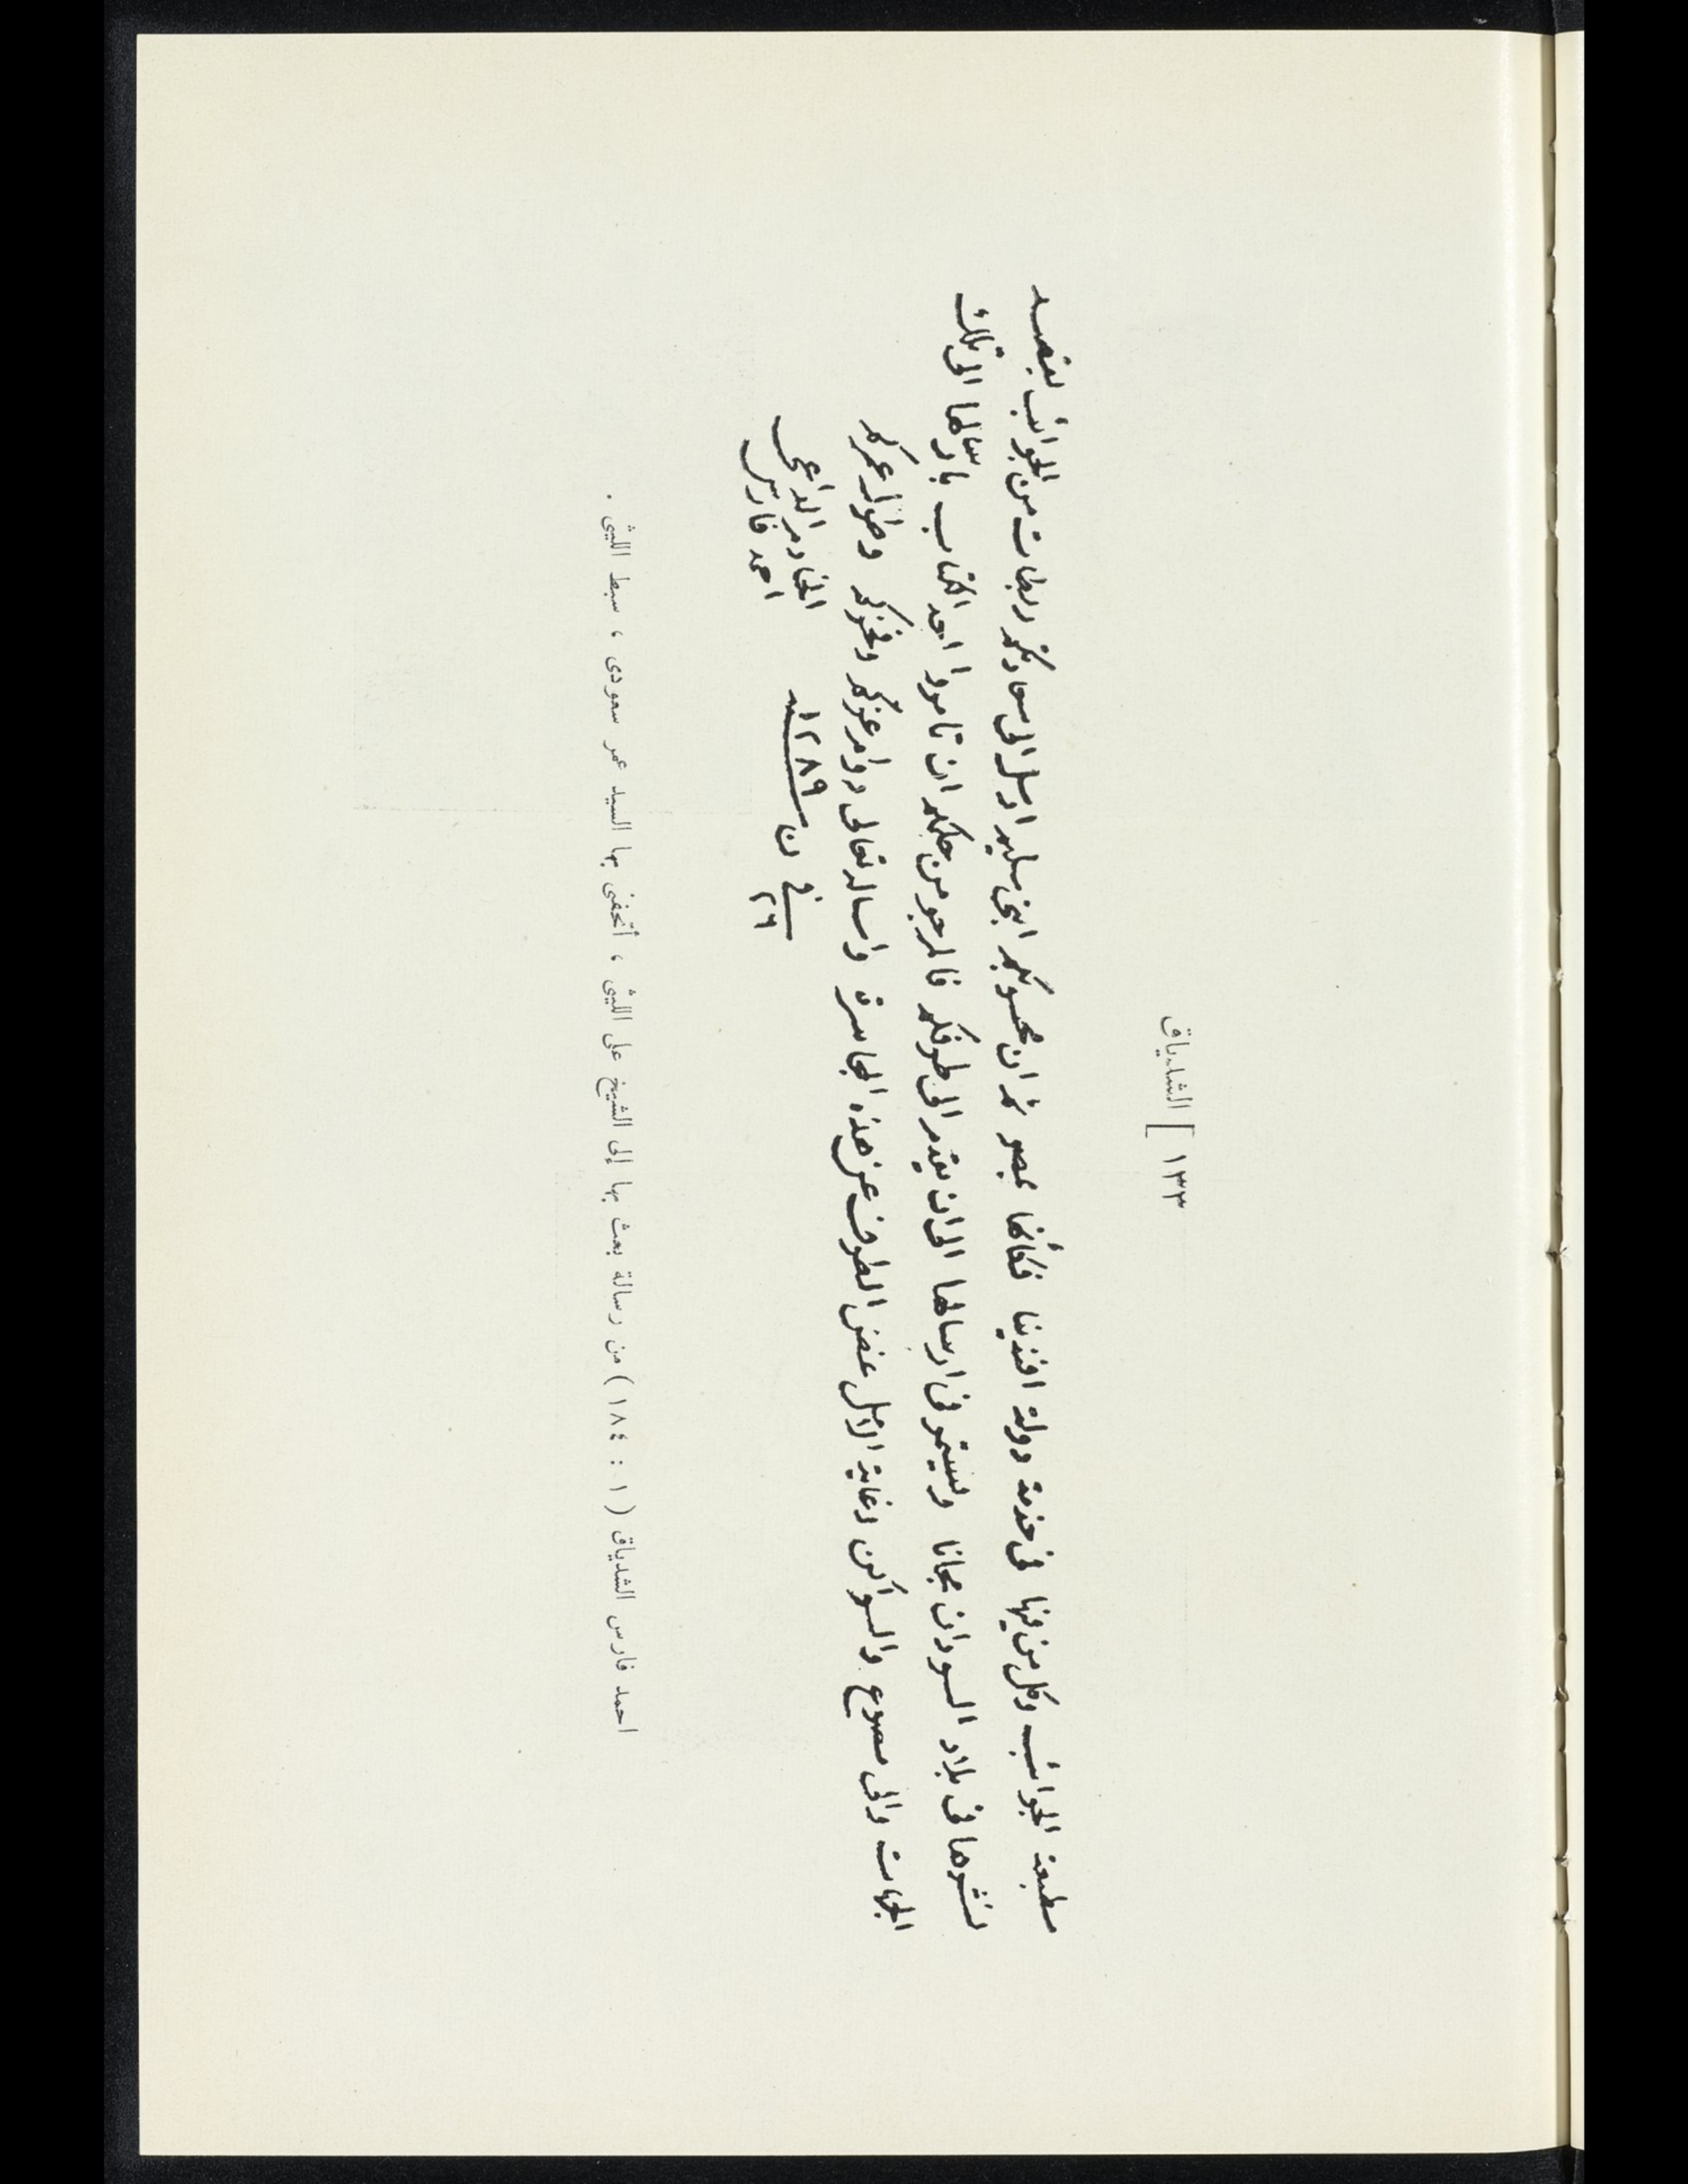 ١٣٣ [ الشدياق
مطبعة الجوائب وكل من فيها فى خدمة دولة افندينا فكأنها بمصر ثم ان محسوبكم ابنى سليم ارسل الى سعادتكم ربطات من الجوائب بقصد
نشرها فى بلاد السودان مجانا وسيستمر فى ارسالها الى ان يقدم الى طرفكم فالمرجو من حلمكم ان تامروا احد الكتاب بارسالها الى تلك
الجهات والى مصوع والسواكن وغاية الامل غض الطرف عن هذه الجاسرة واساله تعالى دوام عزكم وفخركم وطول عمركم
فى ٢٦ ن سنة ١٢٨٩
الخادم الداعى
احمد فارس
احمد فارس الشدياق ( ١ : ١٨٤ ) من رسالة بعث بها إلى الشيخ على الليثى ، أتحفنى بها السيد عمر سعودى ، سبط الليثى .